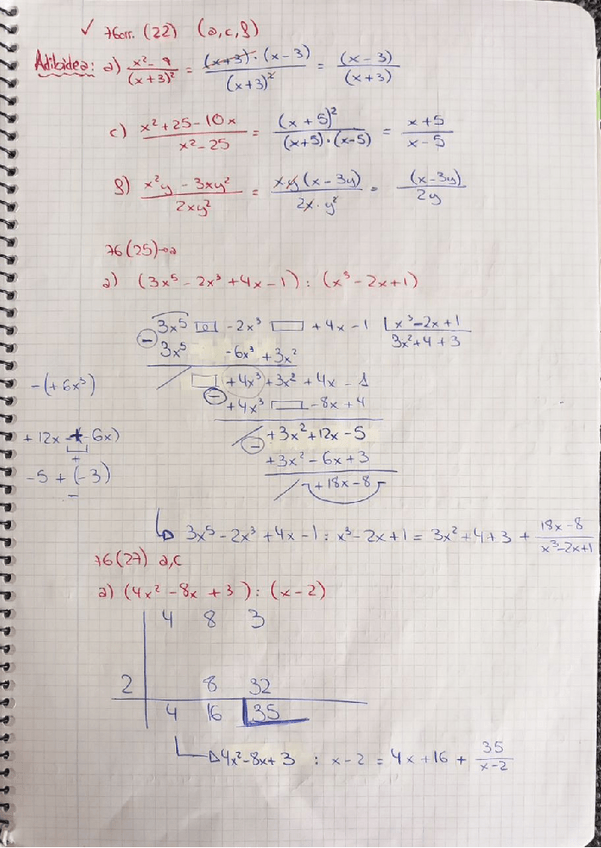 ✓ 76orr. (22) (a,c,f)
Adibidea: a) x² - 9 / (x+3)² = (x+3)·(x-3) / (x+3)² = (x-3) / (x+3)
c) x²+25-10x / x²-25 = (x+5)² / (x+5)·(x-5) = x+5 / x-5
f) x²y - 3xy² / 2xy² = x·y(x-3y) / 2x·y² = (x-3y) / 2y
76(25)→a
a) (3x⁵ - 2x³ + 4x - 1) : (x³ - 2x + 1)
3x⁵ □ - 2x³ □ + 4x - 1 | x³ - 2x + 1
- 3x⁵ - 6x³ + 3x² 3x² + 4 + 3
-(+6x³) □ + 4x³ + 3x² + 4x - 1
- + 4x³ □ - 8x + 4
+ 12x + (-6x) + 3x² + 12x - 5
-5 + (-3) - + 3x² - 6x + 3
+ 18x - 8
↳ 3x⁵ - 2x³ + 4x - 1 : x³ - 2x + 1 = 3x² + 4 + 3 + 18x - 8 / x³ - 2x + 1
76(27) a,c
a) (4x² - 8x + 3) : (x - 2)
4 8 3
2 8 32
4 16 35
↳ 4x² - 8x + 3 : x - 2 = 4x + 16 + 35 / x-2